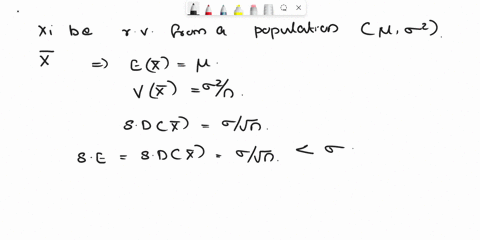 xi be r.v. from a population (μ, σ²).
X̄ ⇒ E(X̄) = μ.
V(X̄) = σ²/n.
S.D(X̄) = σ/√n.
S.E = S.D(X̄) = σ/√n. < σ.